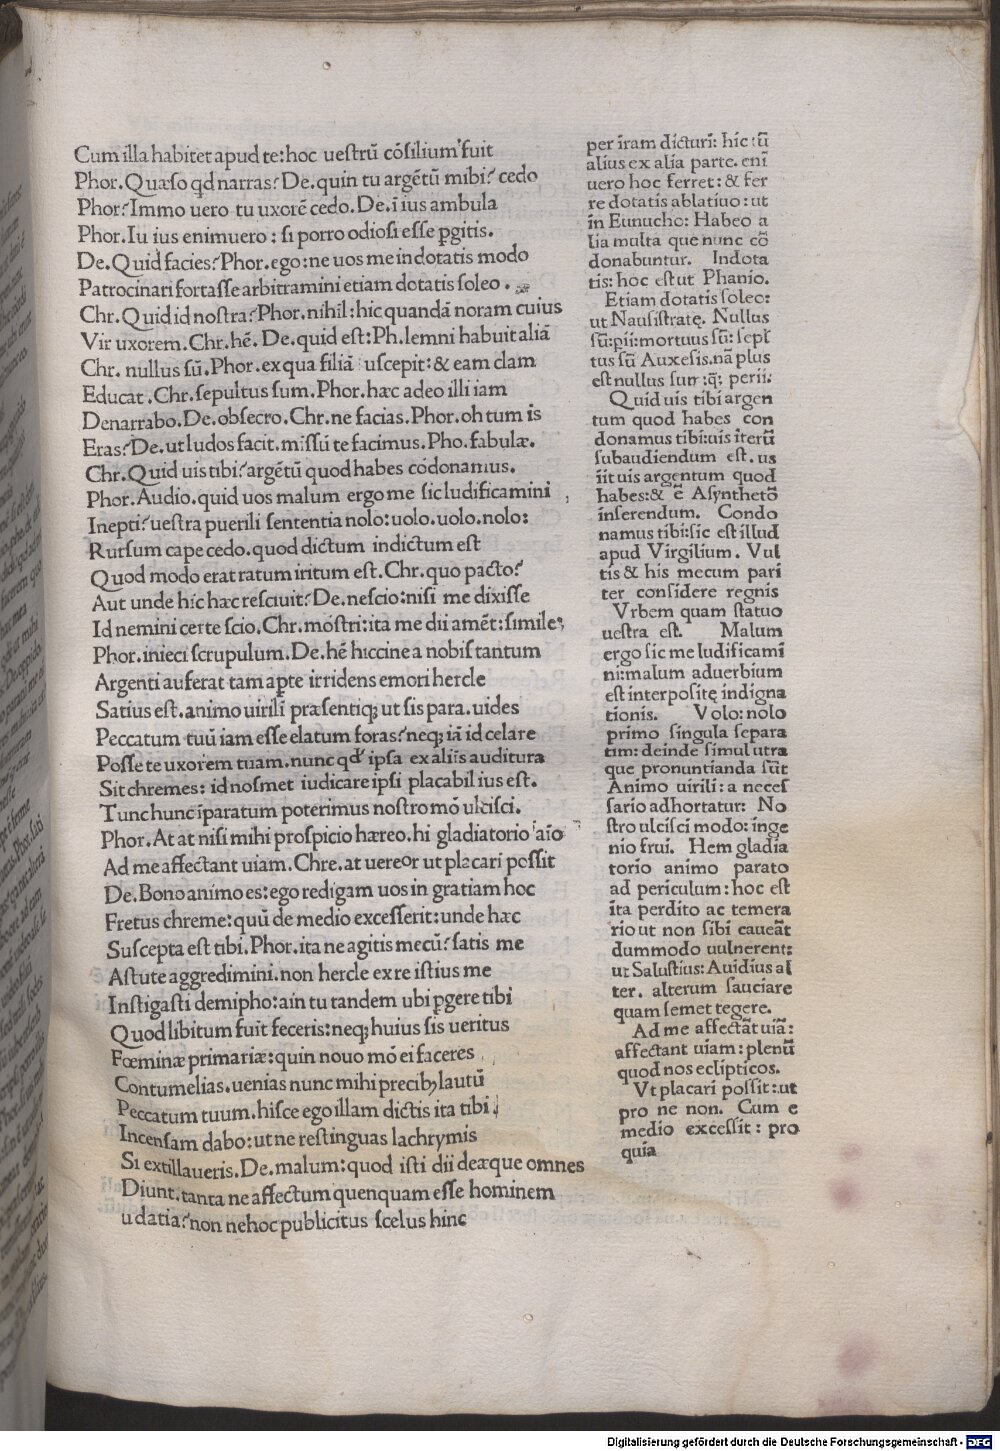 Cum illa habitet apud te:hoc uestrũ cõsilium fuit
Phor.Quæso qd narras? De.quin tu argẽtũ mihi? cedo
Phor?Immo uero tu uxorẽ cedo.De.ĩ ius ambula
Phor.Iu ius enimuero: si porro odiosi esse pgitis.
De.Quid facies?Phor.ego:ne uos me indotatis modo
Patrocinari fortasse arbitramini etiam dotatis soleo.
Chr.Quid id nostra?Phor.nihil:hic quandã noram cuius
Vir uxorem.Chr.hẽ. De.quid est:Ph.lemni habuit aliã
Chr. nullus sũ.Phor.ex qua filiã uscepit:& eam clam
Educat.Chr.sepultus sum.Phor.hæc adeo illi iam
Denarrabo.De.obsecro.Chr.ne facias.Phor.oh tum is
Eras?De.ut ludos facit.missũ te facimus.Pho.fabulæ.
Chr.Quid uis tibi?argẽtũ quod habes cõdonamus.
Phor.Audio.quid uos malum ergo me sic ludificamini
Inepti?uestra puerili sententia nolo:uolo.uolo.nolo:
Rursum cape cedo.quod dictum indictum est
Quod modo erat ratum iritum est.Chr.quo pacto?
Aut unde hic hæc resciuit?De.nescio:nisi me dixisse
Id nemini certe scio.Chr.mõstri:ita me dii amẽt:simile,
Phor.inieci scrupulum.De.hẽ hiccine a nobis tantum
Argenti auferat tam apte irridens emori hercle
Satius est.animo uirili præsentiq; ut sis para.uides
Peccatum tuũ iam esse elatum foras?neq; iã id celare
Posse te uxorem tuam.nunc qd ipsa ex aliis auditura
Sit chremes: id nosmet iudicare ipsi placabilius est.
Tunc hunc ĩparatum poterimus nostro mõ ulcisci.
Phor.At at nisi mihi prospicio hæreo.hi gladiatorio aĩo
Ad me affectant uiam.Chre.at uereor ut placari possit
De.Bono animo es:ego redigam uos in gratiam hoc
Fretus chreme:quũ de medio excesserit:unde hæc
Suscepta est tibi.Phor.ita ne agitis mecũ?satis me
Astute aggredimini.non hercle ex re istius me
Instigasti demipho:ain tu tandem ubi pgere tibi
Quod libitum fuit feceris:neq; huius sis ueritus
Fœminæ primariæ:quin nouo mõ ei faceres
Contumelias.uenias nunc mihi precibꝫ lautũ
Peccatum tuum.hisce ego illam dictis ita tibi
Incensam dabo:ut ne restinguas lachrymis
Si extillaueris.De.malum:quod isti dii deæque omnes
Diunt.tanta ne affectum quenquam esse hominem
udatia?non ne hoc publicitus scelus hinc
per iram dicturi: hic tũ
alius ex alia parte. eni
uero hoc ferret: & fer
re dotatis ablatiuo: ut
in Eunucho: Habeo a
lia multa que nunc cõ
donabuntur. Indota
tis: hoc est ut Phanio.
Etiam dotatis soleo:
ut Nausistratę. Nullus
sũ:pii:mortuus sũ: sepl
tus sũ Auxesis.nã plus
est nullus sum :q; perii.
Quid uis tibi argen
tum quod habes con
donamus tibi:uis iterũ
subaudiendum est. us
iit uis argentum quod
habes:& ẽ Asynthetõ
inserendum. Condo
namus tibi:sic est illud
apud Virgilium. Vul
tis & his mecum pari
ter considere regnis
Vrbem quam statuo
uestra est. Malum
ergo sic me ludificami
ni:malum aduerbium
est interpositę indigna
tionis. Volo: nolo
primo singula separa
tim: deinde simul utra
que pronuntianda sũt
Animo uirili: a neces
sario adhortatur: No
stro ulcisci modo: inge
nio frui. Hem gladia
torio animo parato
ad periculum: hoc est
ita perdito ac temera
rio ut non sibi caueãt
dummodo uulnerent:
ut Salustius: Auidius al
ter. alterum sauciare
quam semet tegere.
Ad me affectãt uiã:
affectant uiam: plenũ
quod nos eclipticos.
Vt placari possit:ut
pro ne non. Cum e
medio excessit: pro
quia
Digitalisierung gefördert durch die Deutsche Forschungsgemeinschaft - DFG